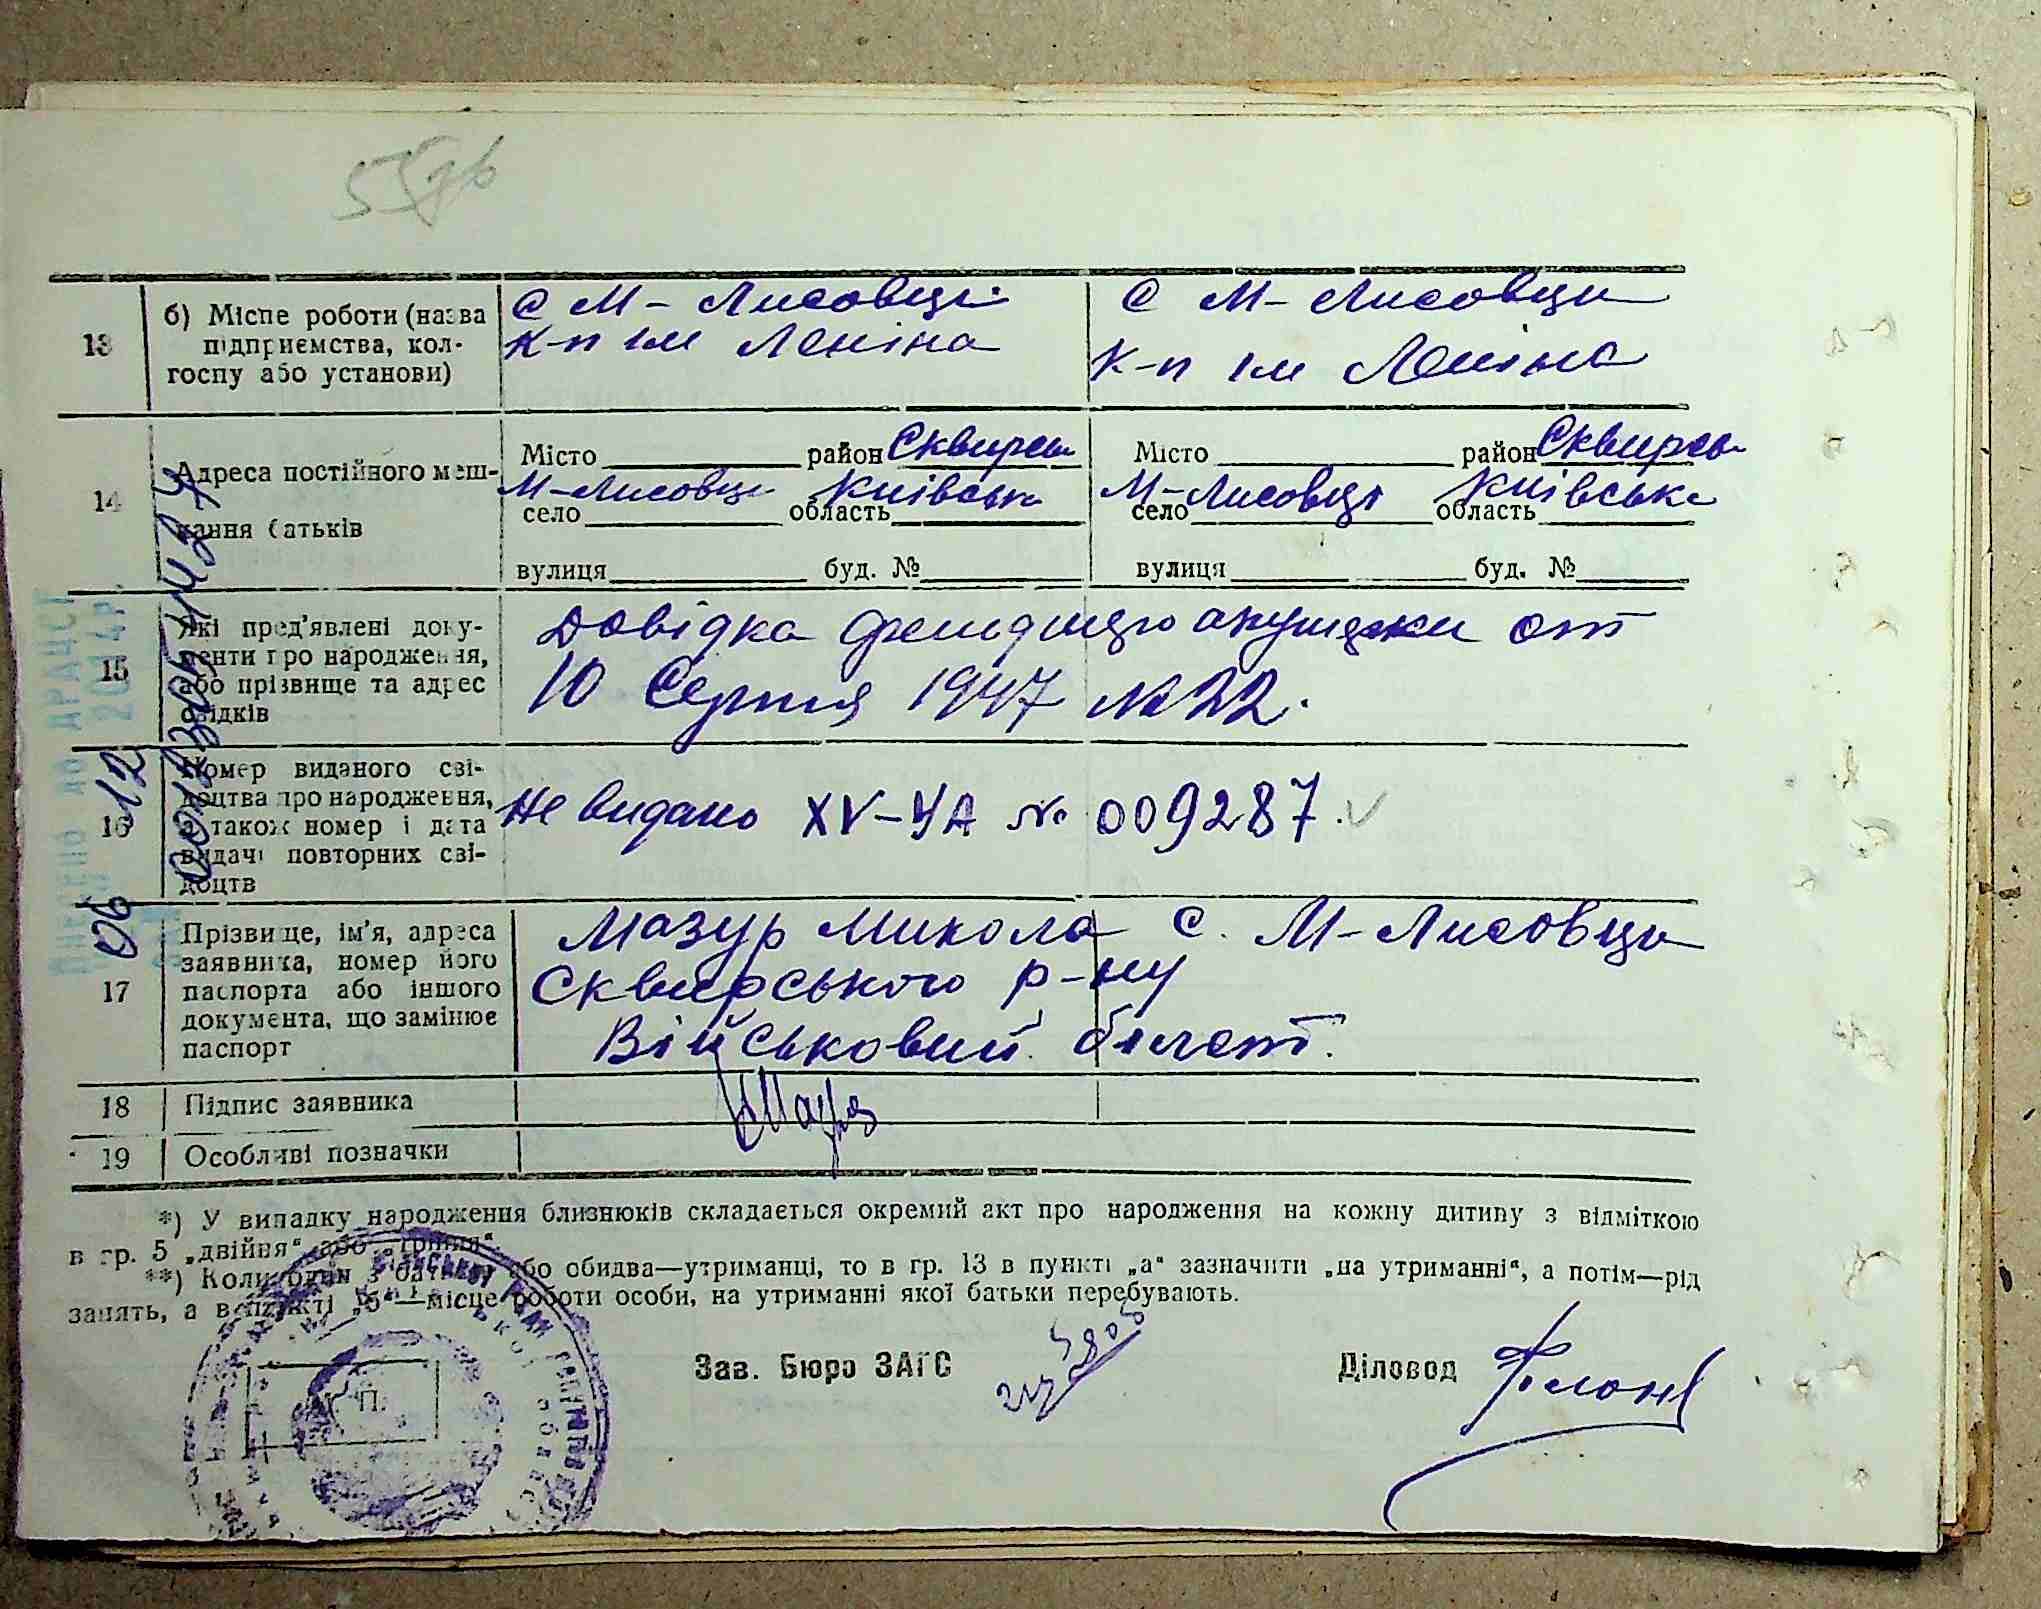 55зв
13
б) Місце роботи (назва
підприємства, кол-
госпу або установи)
С М-Лисовці
К-п ім Леніна
С М-Лисовци
К-п ім Леніна
14
Адреса постійного меш-
кання батьків
Місто район Сквирськ
М-Лисовці Київськ
село область
вулиця буд. №
Місто район Сквирсь
М-Лисовці Київська
село область
вулиця буд. №
15
Які пред'явлені доку-
менти про народження,
або прізвище та адрес
свідків
Довідка от
10 Серпня 1947 № 22.
16
Номер виданого сві-
доцтва про народження,
а також номер і дата
видачі повторних сві-
доцтв
Не видано XV-УА № 009287.
17
Прізвище, ім'я, адреса
заявника, номер його
паспорта або іншого
документа, що замінює
паспорт
Мазур Микола с. М-Лисовци
Сквирського р-ну
Військовий білет.
18
Підпис заявника
19
Особливі позначки
*) У випадку народження близнюків складається окремий акт про народження на кожну дитину з відміткою
в гр. 5 „двійня“ або „трійня“.
**) Коли один з батьків або обидва—утриманці, то в гр. 13 в пункті „а“ зазначити „на утриманні“, а потім—рід
занять, а в пункті „б“—місце роботи особи, на утриманні якої батьки перебувають.
М. П.
Зав. Бюро ЗАГС
Діловод
ВНЕСЕНО ДО ДРАЦСГ
06 12 2014р